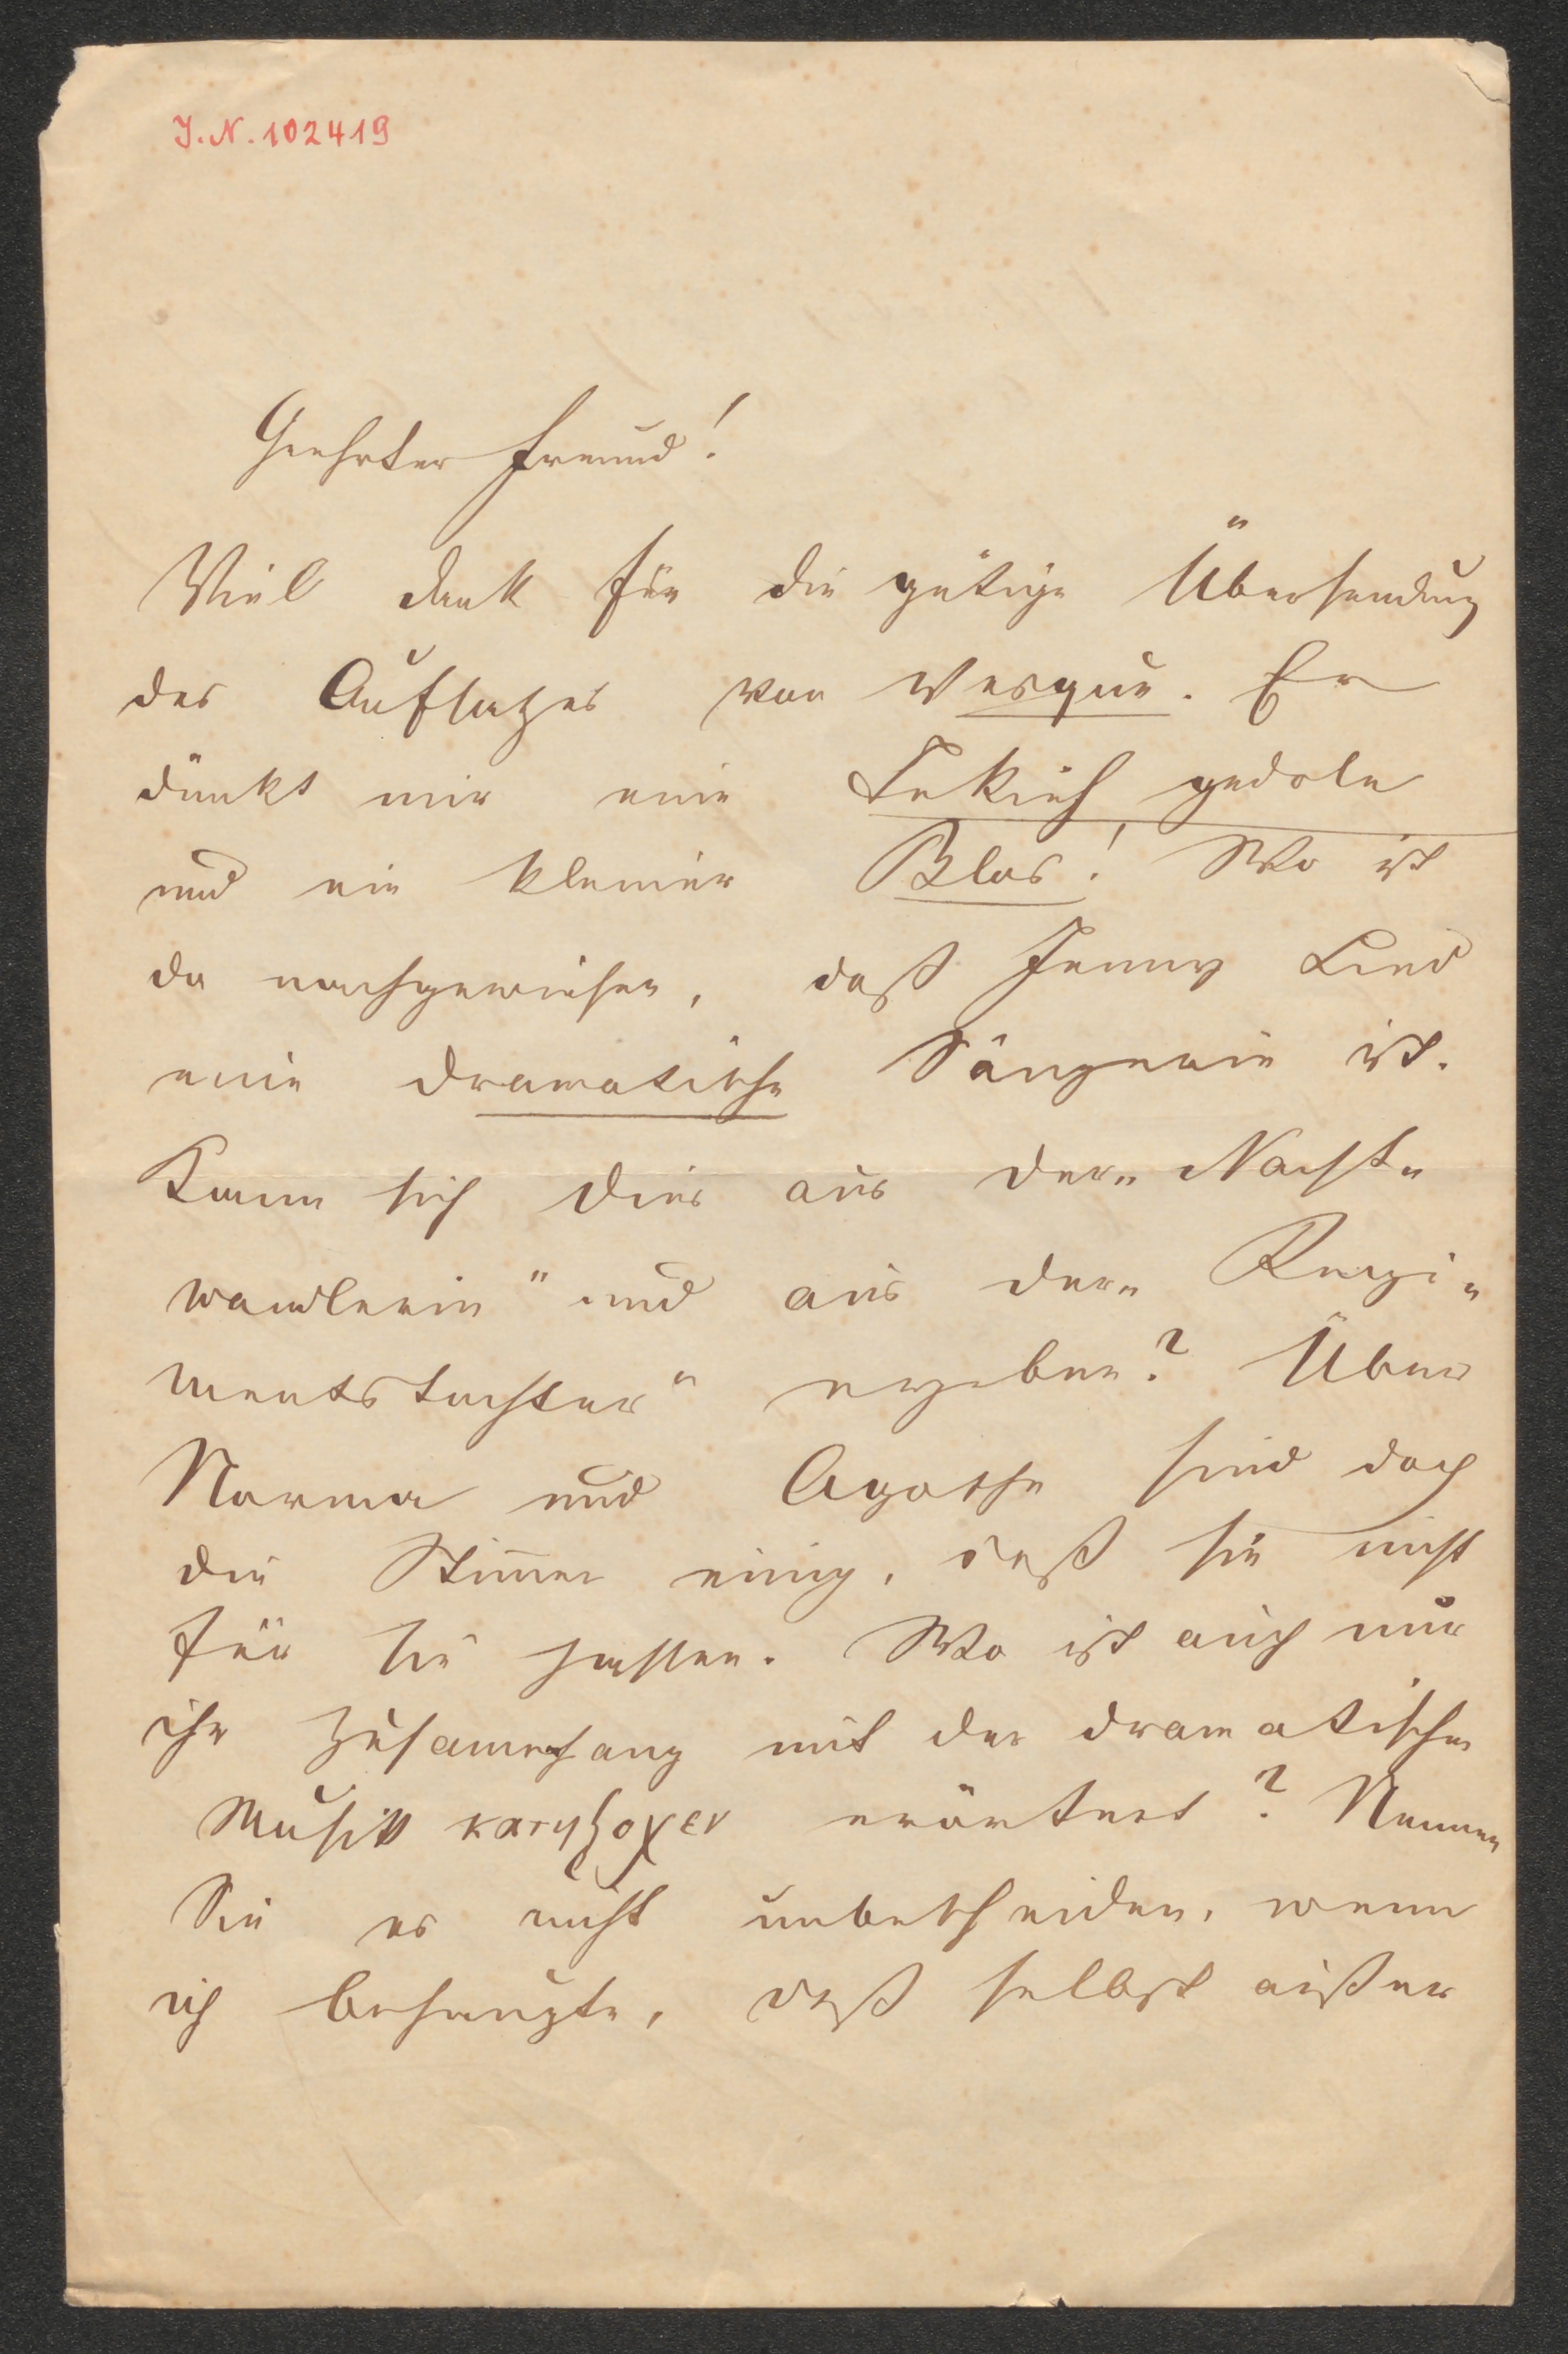 I.N. 102419
Geehrter Freund!
Viel Dank für die gütige Übersendung
des Aufsatzes von Vesque. Er
dünkt mir eine
und ein kleiner Blas! Wo ist
da nachgewiesen, daß Jenny Lind
eine dramatische Sängerin ist.
Kann sich dies aus der „Nacht„
wandlerin" und aus der „Regi„
mentstochter" ergeben? Über
Norma und Agathe sind doch
die Stimmen einig, daß sie nicht
für sie passen. Wo ist auch nur
ihr Zusamenhang mit der dramatischen
Musik erörtert? Nennen
Sie es nicht unbescheiden, wenn
ich behaupte, daß selbst außer